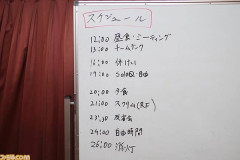 スケジュール
12:00 昼食・ミーティング
13:00 チームランク
16:00 休けい
17:00 SoloQ・自由
20:00 夕食
21:00 スクリム(BF)
23:30 反省会
24:00 自由時間
26:00 消灯